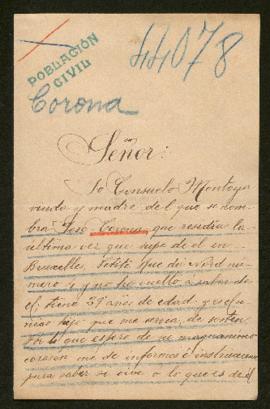 44078
POBLACIÓN
CIVIL
Corona
Señor:
Yo Consuelo Montoya
viuda y madre del que se nom-
bra José Corona, que residia la
última vez que supe de el en
Bruselles, Petite Rue du Nord nú-
mero y no he vuelto a saber de
el. tiene 39 años de edad, y es el
unico hijo que me servia de sosten
Por lo que espero de su magnanimo
corazón me de informes o instrucciones
para saber si vive o lo que es de él